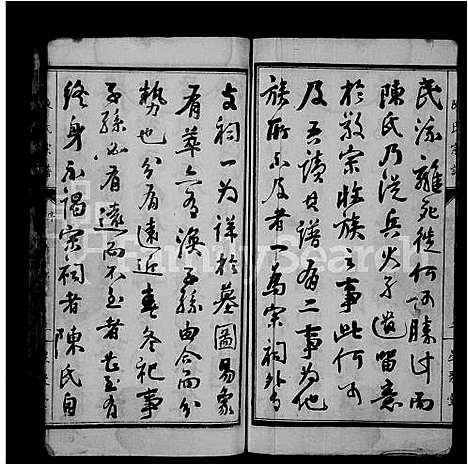 民流離死徙何可勝计而
陳氏乃從兵火孑遺留意
於敬宗收族之事此何可
及吾讀其譜有二事为他
族所不及者一為宗祠外有
支祠一为詳於墓圖易象
有萃亦有渙子孫由合而分
勢也分有遠近春冬祀事
子孫必有遠而不至者甚至有
終身不謁宗祠者陳氏自